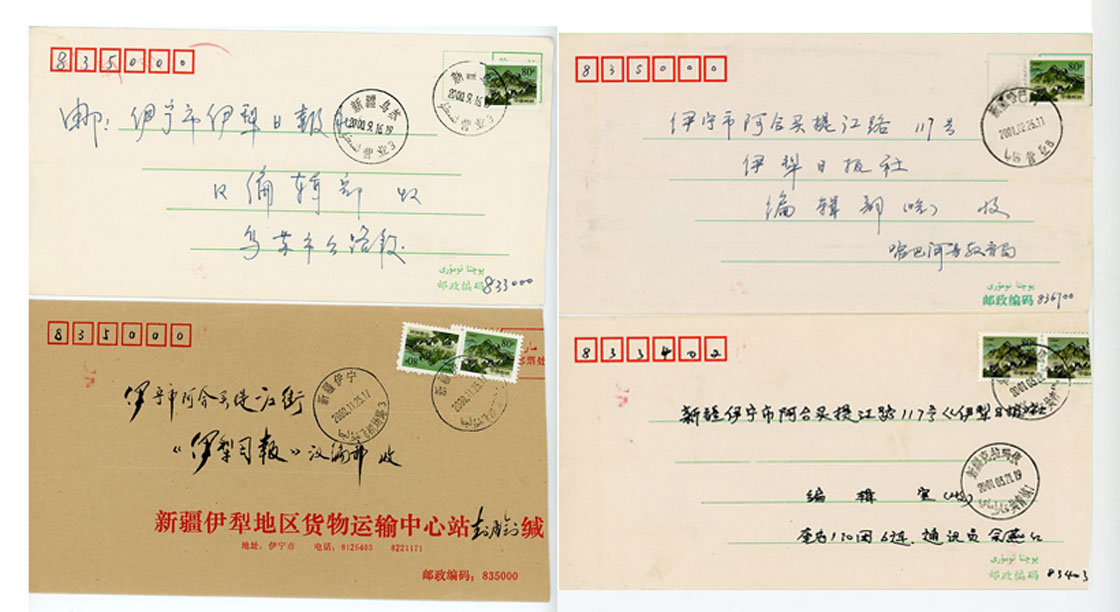 835000
80分
新疆乌苏
2000.9.16.19
营业3
邮:伊宁市伊犁日报社
汉编辑部收
乌苏市公路段
پوچتا نومۇرى
邮政编码 833000
835000
80分
新疆
2001.12.26.11
营业
伊宁市阿合买提江路117号
伊犁日报社
编辑部(收) 收
哈巴河县教育局
پوچتا نومۇرى
邮政编码 836700
835000
80分
新疆伊宁
2000.11.25.17
伊宁市阿合买提江街
《伊犁日报》汉编部 收
新疆伊犁地区货物运输中心站 缄
地址:伊宁市 电话:8125405 8221171
邮政编码:835000
833402
新疆伊宁市阿合买提江路117号《伊犁日报》社
新疆克拉玛依
2001.03.21.19
编辑室(收)
奎屯130团6连 通讯员
پوچتا نومۇرى
邮政编码 83403